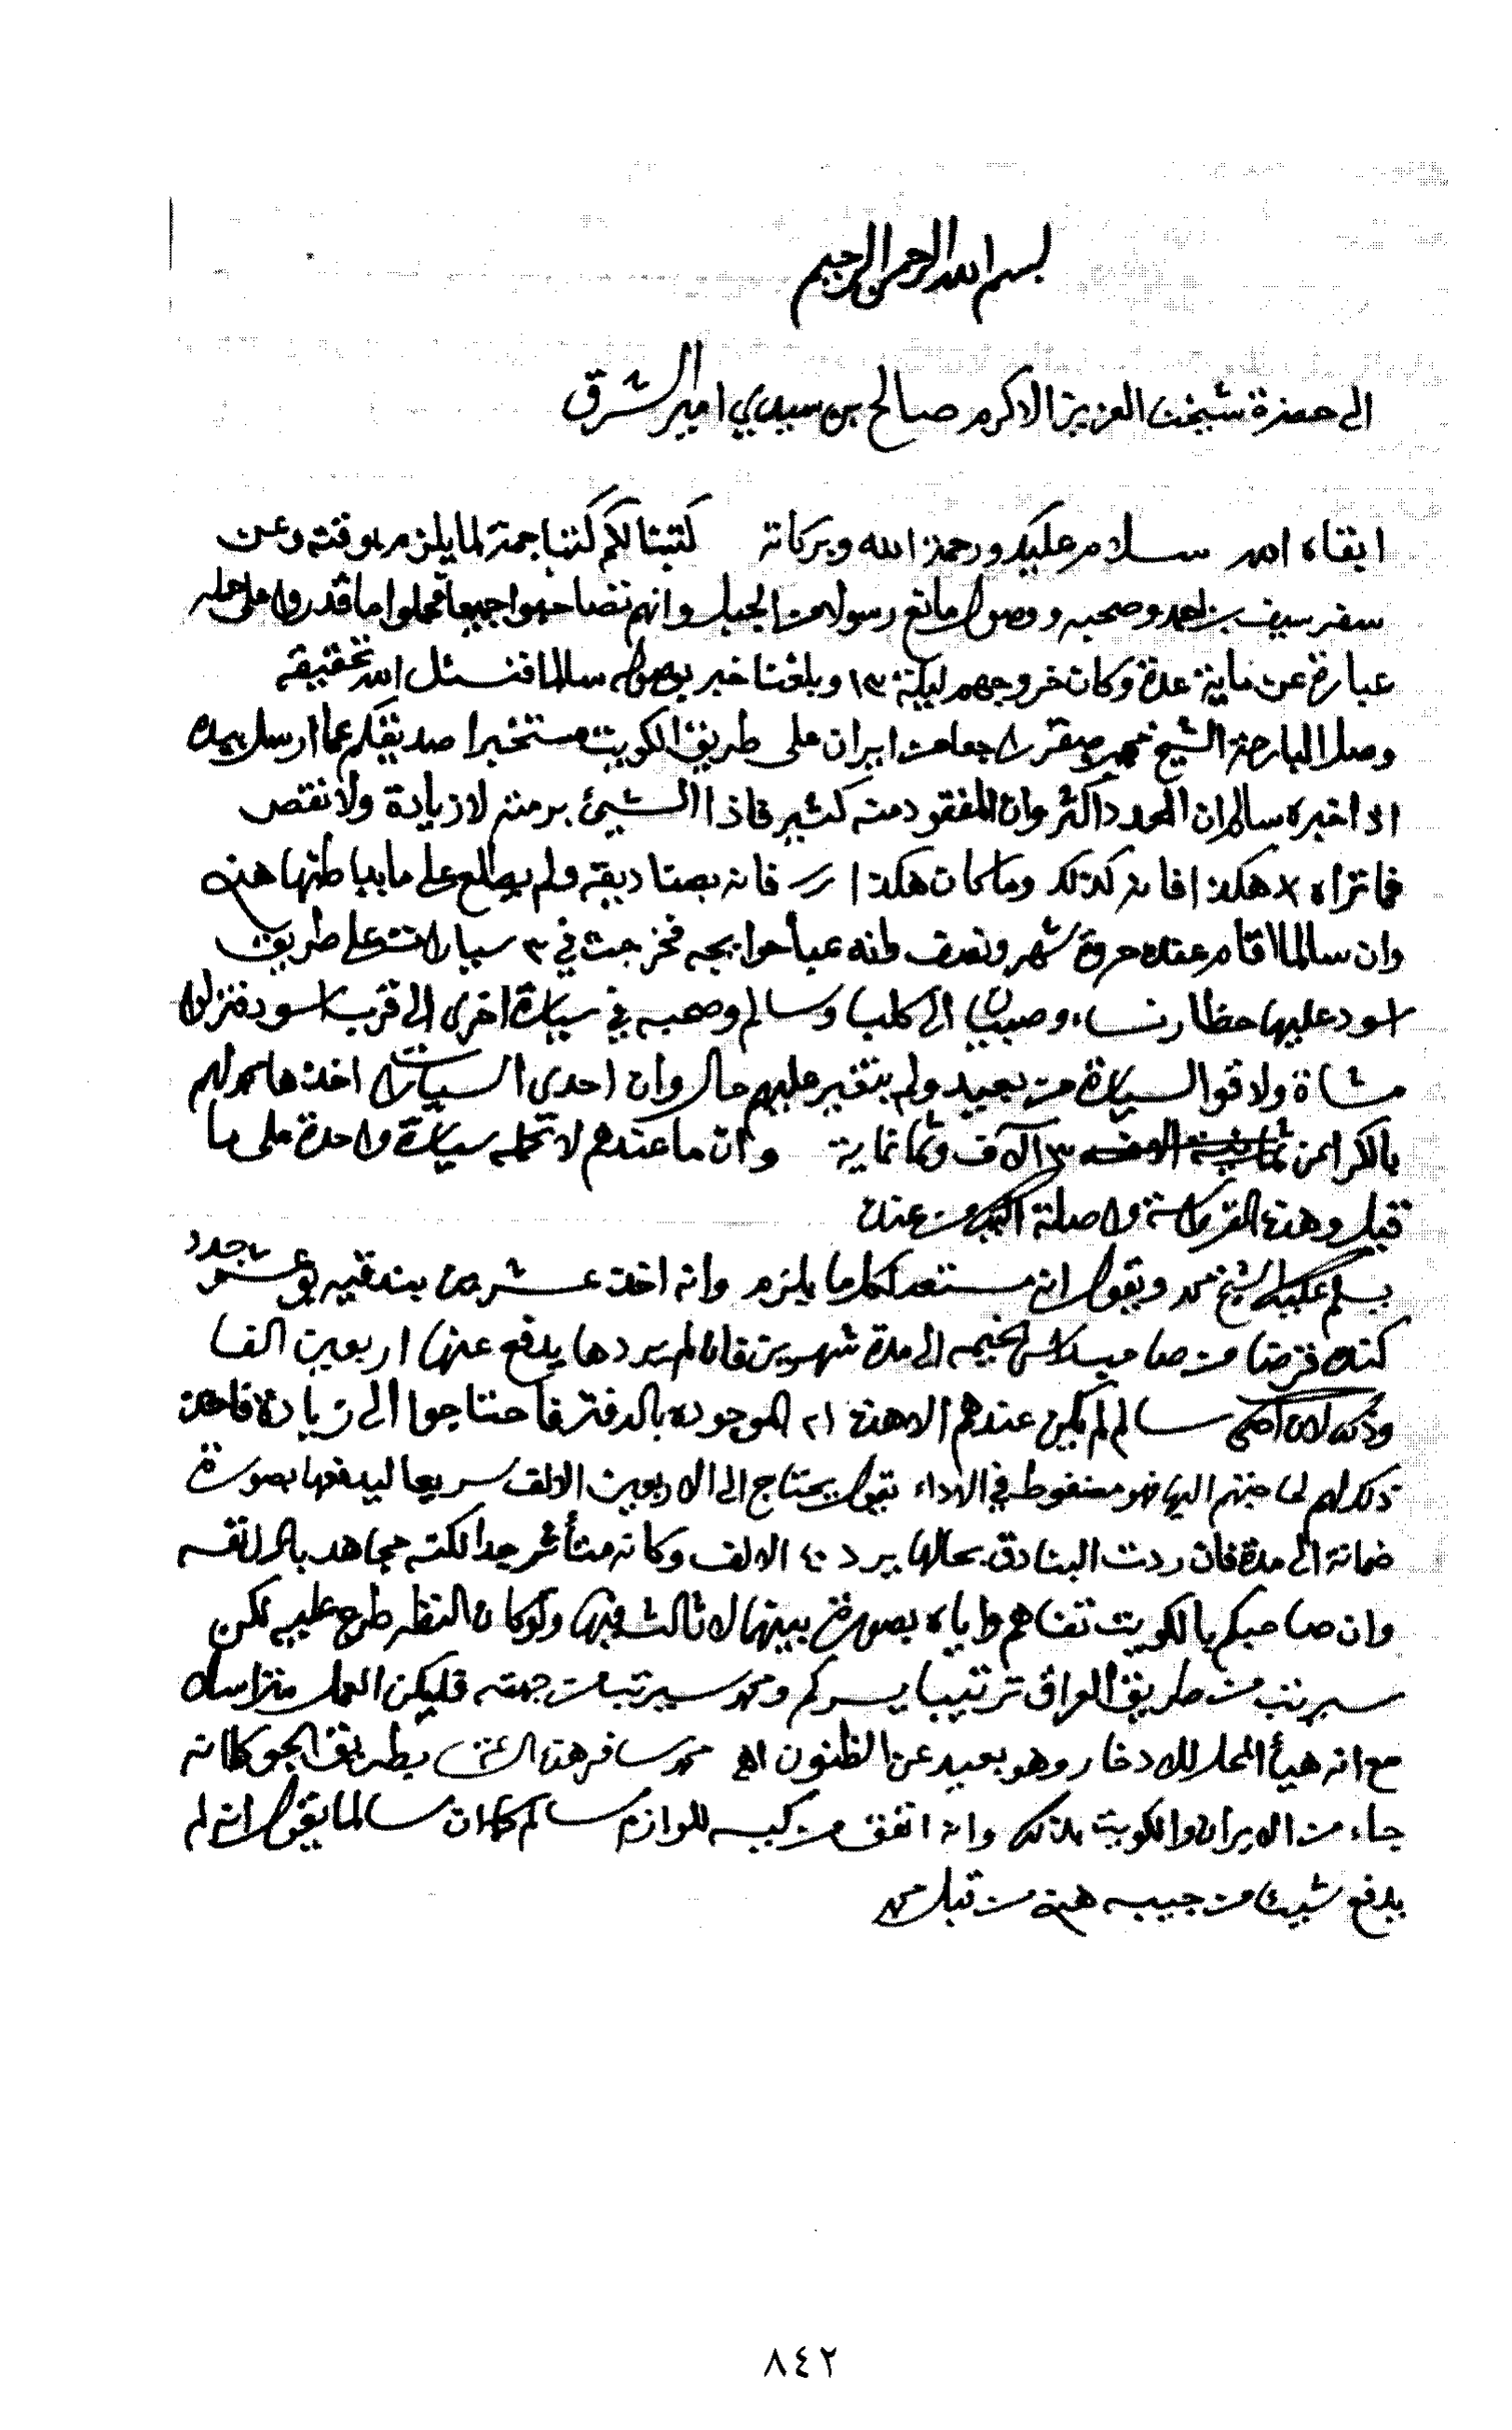 بسم الله الرحمن الرحيم
الى حضرة شيخنا العزيز الاكرم صالح بن سيدي امير الشرق
ابقاه الله سلام عليك ورحمة الله وبركاته كتبنا لكم كتبا جمة لما يلزم بوقته وعن
سفر سيف بن احمد وصحبه ووصول مانع رسولا من الجبل وانهم تصاحبوا جميعا فحملوا ماقدروا على حمله
عبارة عن ماية عدة وكان خروجهم ليلة ١٣ وبلغنا خبر بوصوله سالما فنسئل الله تحقيقه
وصل البارحة الشيخ راجعا من ايران على طريق الكويت مستخبرا صديقكم عما ارسل بيده
اذ اخبره سالم ان العدد اكثر وان المفقود منه كثير فاذا الشيئ برمته لا زيادة ولا نقص
فما تراه هكذا فانه كذلك وما كان هكذا فانه بصناديقه ولم يطلع على مابباطنها هنه
وان سالما اقام عنده شهر ونصف وانه عبأ حوايجه فخرجت في ٣ سيارات على طريق
اسود عليها حظار نساء وصبيان الى كلبا وسالم وصحبه في سيارة اخرى الى قرب اسود فنزلوا
مشاة ولاقوا السيارة من بعيد ولم يتغير عليهم حال وان احدى السيارات اخذها لهم
بالكرا من ٣ آلاف وثمانماية وان ما عندهم لا تحمله سيارة واحدة على ما
قيل وهذه واصلة اليك من عنده
يسلم عليك الشيخ محمد ويقول انه مستعد لكل ما يلزم وانه اخذ عشرين بندقيه بو عشر جدد
كنده قرضا من صاحب الخيمه الى مدة شهرين فان لم يردها يدفع عنها اربعين الفا
وذلك لان سالم لم يكن عندهم الا هذه ٢١ الموجوده بالدفتر فاحتاجوا الى زيادة فاخذ
ذلك لهم لحاجتهم اليها فهو مضغوط في الاداء يقول يحتاج الى الاربعين الالف سريعا ليدفعها بصورة
ضمانة الى مدة فان ردت البنادق بحالها يرد ٤٠ الالف وكانه متأثر جدا لكنه مجاهد
وان صاحبكم بالكويت تفاهم واياه بصورة بينهما لا ثالث فيها ولو كان النظر طرح عليه لكن
سيرتب من طريق العراق ترتيبا يسركم ومحمد سيرتب من جهته فليكن العمل
مع انه هيأ المحل للادخار وهو بعيد عن الظنون اه محمد سافر هذه بطريق الجو كانه
جاء من الايران والكويت بذلك وانه انفق من كيسه للوازم سالم سالما يقول انه لم
يدفع شيئا من جيبه هنه من قبل محمد
٨٤٢